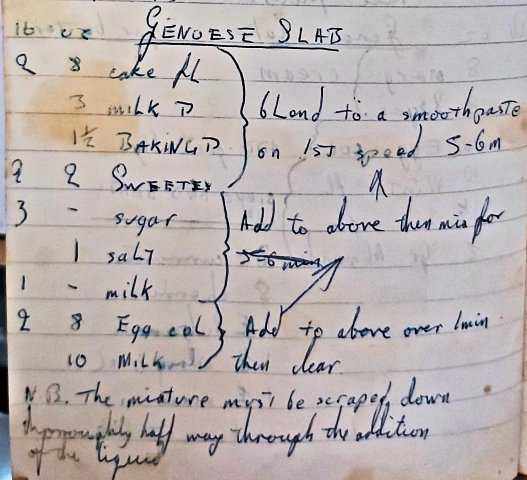 lb oz GENOESE SLAB
2 8 cake fl
3 milk P
1½ BAKING P
Blend to a smooth paste
on 1ST speed 5-6m
2 2 SWEETEX
3 - sugar
Add to above then mix for
1 salt
5-6 min
1 - milk
2 8 Egg col
Add to above over 1min
10 Milk
then clear.
N B. The mixture must be scraped down
thoroughly half way through the addition
of the liquid